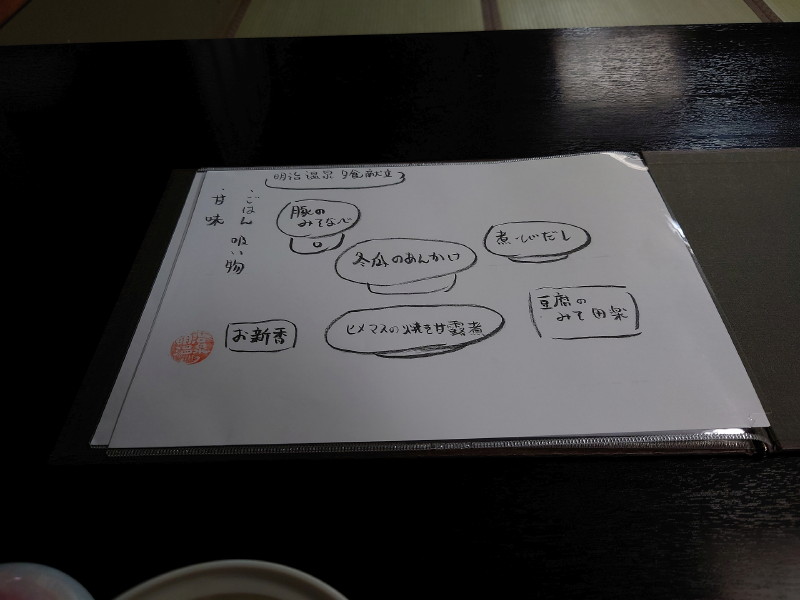 明治温泉 夕食献立
豚の
みそなべ
煮びだし
冬瓜のあんかけ
豆腐の
みそ田楽
ヒメマスの焼き甘露煮
お新香
・ごはん 吸い物
・甘味
明治
温泉